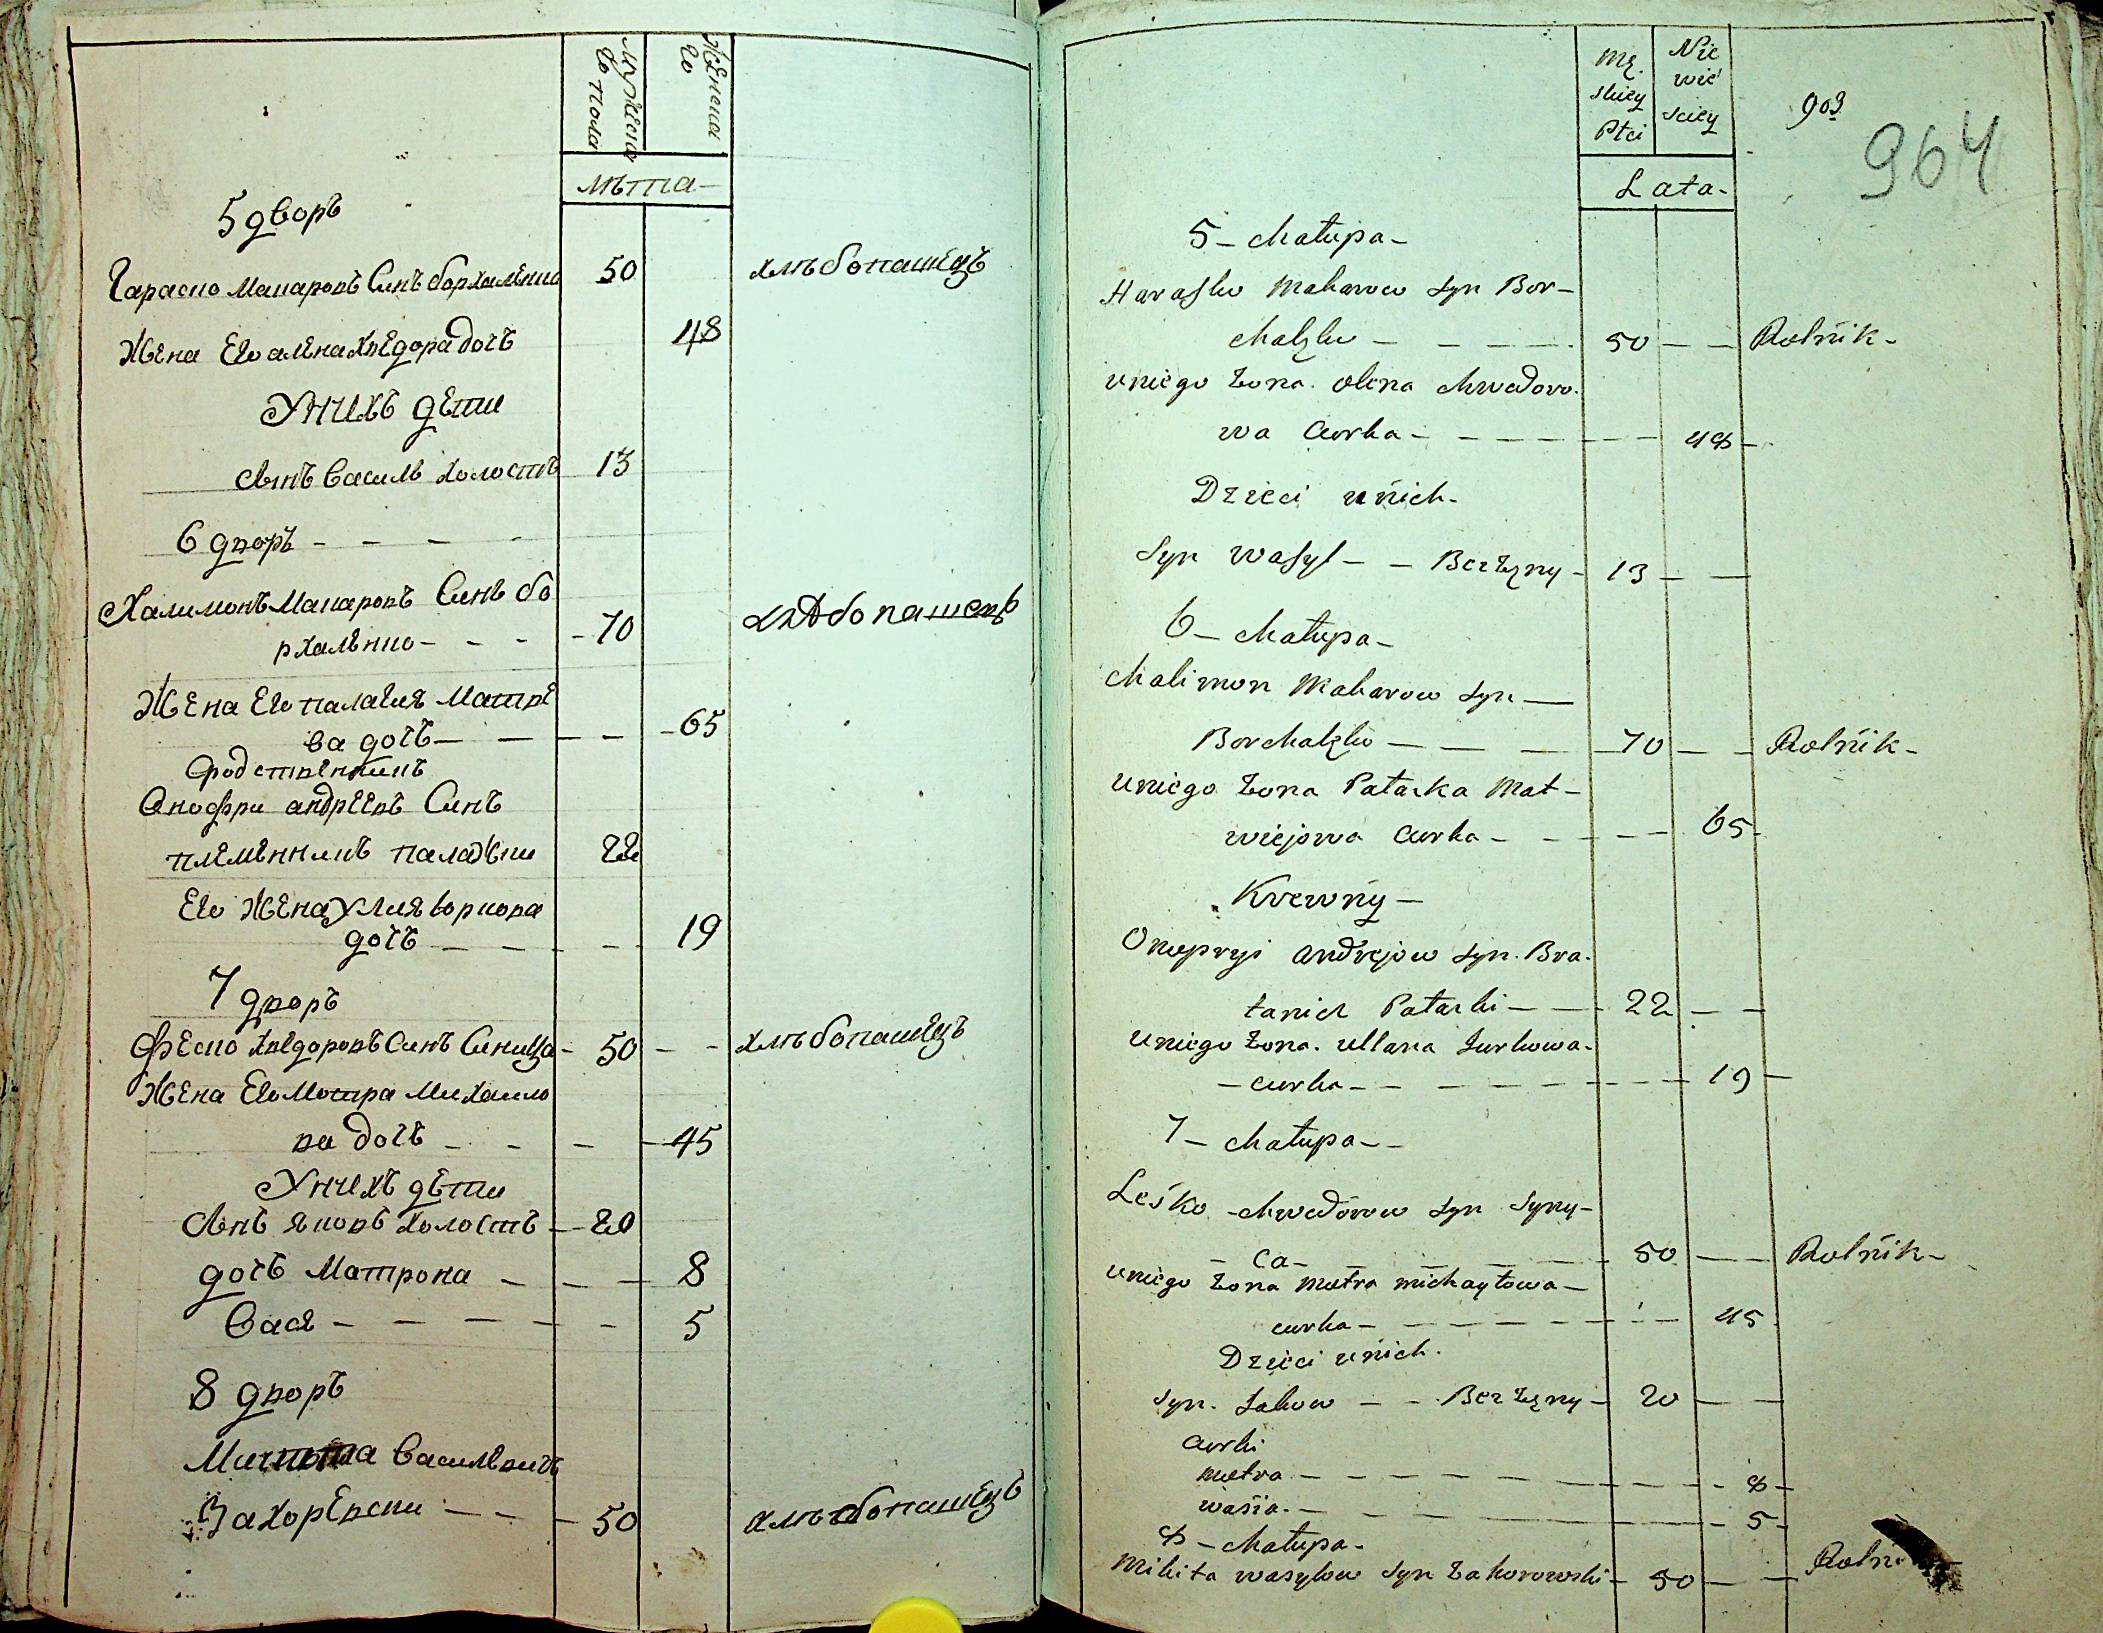 Мужеска
го пола
Женска
го
лѣта
5 дворъ
Гараско Макаровъ Синъ борхаленко 50 хлѣбопашецъ
Жена Его алена хведора дочъ 48
У нихъ дети
Синъ Василь холостъ 13
6 дворъ
Халимонъ Макаровъ Синъ бо
рхаленко 70 хлѣбопашецъ
Жена Его палагия Матве
ва дочъ 65
Сродственникъ
Онофри андреевъ Синъ
племенникъ палажки 22
Его Жена Улия
дочъ 19
7 дворъ
Феско хведоровъ Синъ Синица 50 хлѣбопашецъ
Жена Его Мотра Михайло
ва дочъ 45
У нихъ дѣти
Синъ яковъ холостъ 20
дочъ Матрона 8
Вася 5
8 дворъ
Микита Васильевичъ
Захоревски 50 хлѣбопашецъ
Mę
skiey
Płci
Nie
wie
sciey
903
964
Lata
5 - Chałupa -
Harasko Makarow Syn Bor-
chalęko 50 Rolnik -
u niego Żona Olena Chwedoro
wa Curka - 48
Dzieci u nich -
Syn Wasyl - - Bezżęny - 13
6 - Chałupa -
Chalimon Makarow Syn
Borchalęko 70 Rolnik -
u niego Żona Pałaska Mat-
wiejowa Curka - 65
Krewny -
Onopryi Andrejow Syn. Bra
tanich Pałaski 22
u niego Żona. Ullana Jurkowa
- curka - 19
7 - Chałupa -
Leśko Chwedorow Syn Syny-
ca - 50 Rolnik -
u niego Żona Motra michayłowa -
curka - 45
Dzieci u nich.
Syn. Jakow - - Bezżęny - 20
Curki
Motra - 8
Wasia - 5
8 - Chałupa -
Mikita Wasylow Syn Zahorowski - 50